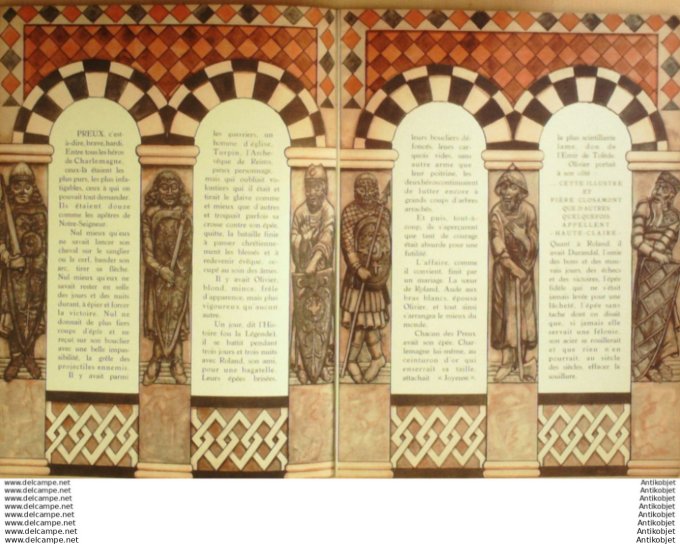 PREUX, c'est-
à-dire, brave, hardi.
Entre tous les héros
de Charlemagne,
ceux-là étaient les
plus purs, les plus infa-
tigables, ceux à qui on
pouvait tout demander.
Ils étaient douze
comme les apôtres de
Notre-Seigneur.
Nul mieux qu'eux
ne savait lancer son
cheval sur le sanglier
ou le cerf, bander son
arc, tirer sa flèche.
Nul mieux qu'eux ne
savait rester en selle
des jours et des nuits
durant, à épier et forcer
la victoire. Nul ne
donnait de plus fiers
coups d'épée et ne
reçut sur son bouclier
avec une belle impas-
sibilité, la grêle des
projectiles ennemis.
Il y avait parmi
les guerriers, un
homme d'église,
Turpin, l'Arche-
vêque de Reims,
pieux personnage,
mais qui oubliait vo-
lontiers qui il était et
tirait le glaive comme
et mieux que d'autres
et troquait parfois sa
crosse contre son épée,
quitte, la bataille finie
à panser chrétienne-
ment les blessés et à
redevenir évêque, oc-
cupé au soin des âmes.
Il y avait Olivier,
blond, mince, frêle
d'apparence, mais plus
vigoureux qu'aucun
autre.
Un jour, dit l'His-
toire (ou la Légende),
il se battit pendant
trois jours et trois nuits
avec Roland, son ami,
pour une bagatelle.
Leurs épées brisées,
leurs boucliers dé-
foncés, leurs car-
quois vides, sans
autre arme que
leur poitrine, les
deux héros continuaient
de lutter encore à
grands coups d'arbres
arrachés.
Et puis, tout-à-
coup, ils s'aperçurent
que tant de courage
était absurde pour une
futilité.
L'affaire, comme
il convient, finit par
un mariage. La sœur
de Roland, Aude aux
bras blancs, épousa
Olivier, et tout ainsi
s'arrangea le mieux du
monde.
Chacun des Preux
avait son épée. Char-
lemagne lui-même, au
ceinturon d'or qui
enserrait sa taille,
attachait « Joyeuse ».
la plus scintillante
lame, don de
l'Emir de Tolède.
Olivier portait
à son côté
CETTE ILLUSTRE
ET
FIÈRE CLOSAMONT
QUE D'AUTRES,
QUELQUEFOIS,
APPELLENT
HAUTE-CLAIRE.
Quant à Roland, il
avait Durandal, l'amie
des bons et des mau-
vais jours, des échecs
et des victoires, l'épée
fidèle qui ne s'était
jamais levée pour une
lâcheté, l'épée sans
tache dont on disait
que, si jamais elle
servait une félonie,
son acier se rouillerait
et que rien n'en
pourrait au siècle
des siècles effacer la
souillure.
www.delcampe.net
www.delcampe.net
www.delcampe.net
www.delcampe.net
www.delcampe.net
www.delcampe.net
www.delcampe.net
www.delcampe.net
Antikobjet
Antikobjet
Antikobjet
Antikobjet
Antikobjet
Antikobjet
Antikobjet
Antikobjet